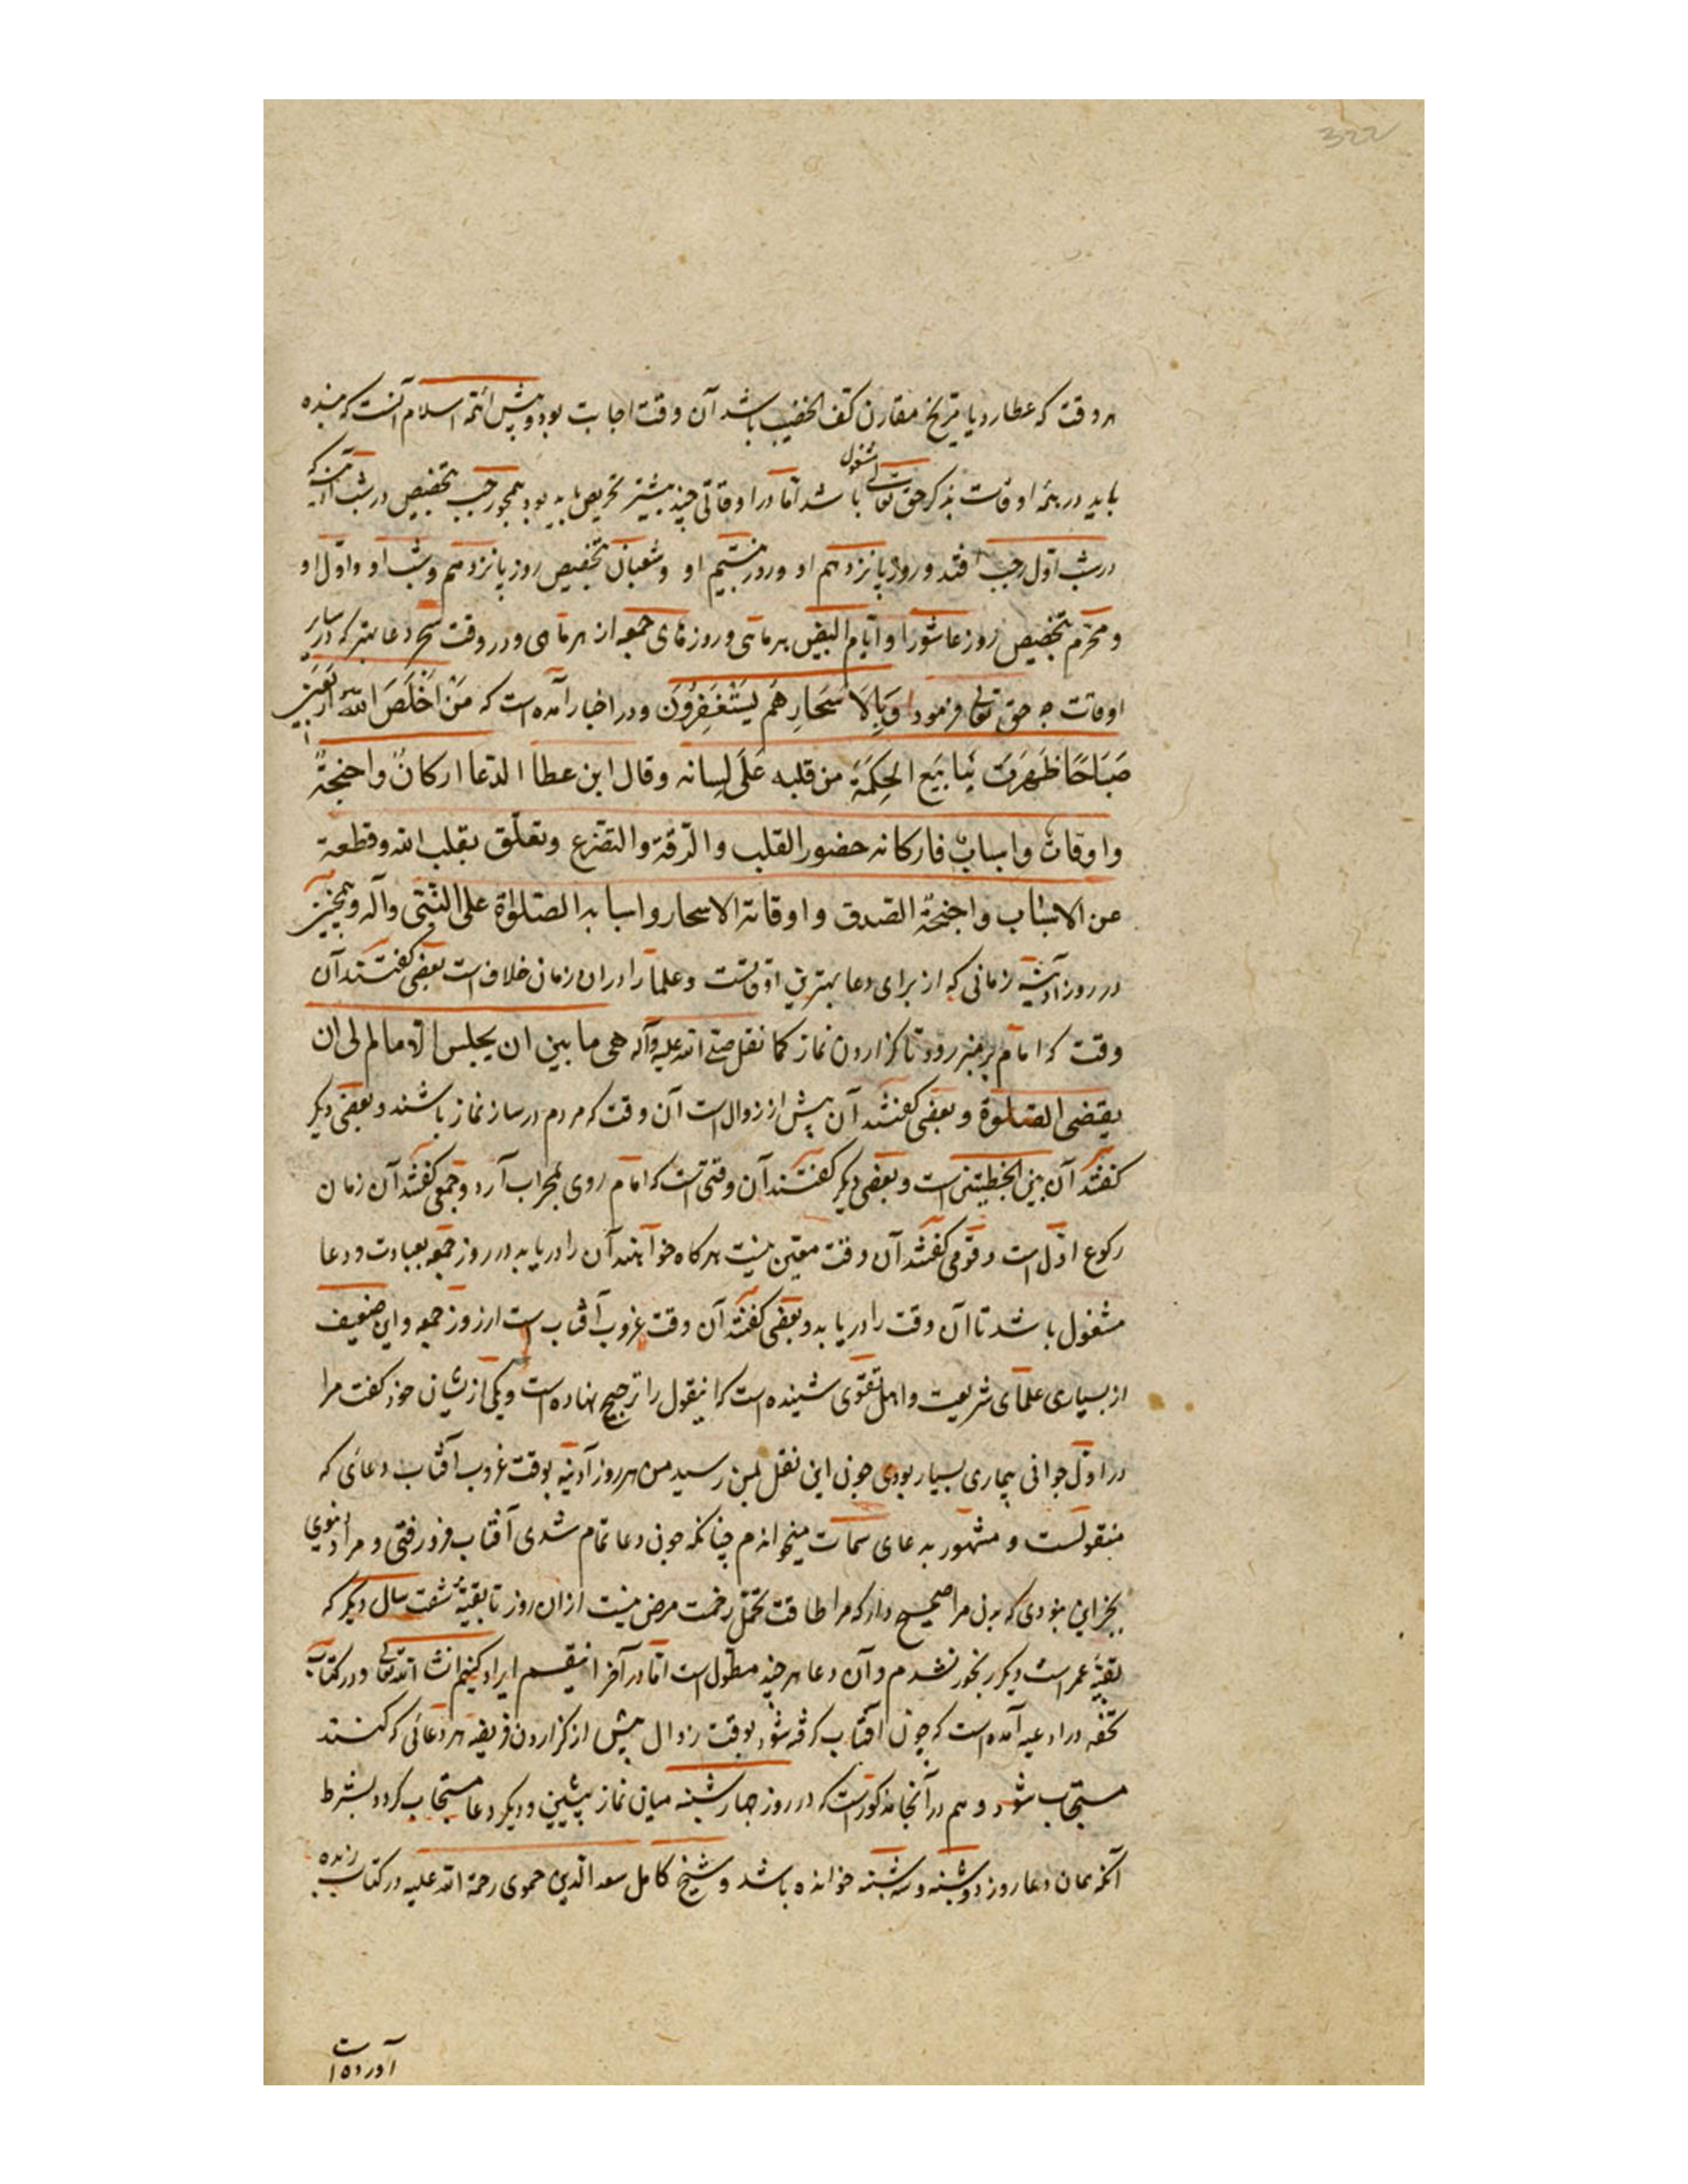 322
هر وقت که عطارد یا مریخ مقارن کف الخضیب باشد آن وقت اجابت بود و پیش ائمه اسلام آنست که بنده
باید در همه اوقات بذکر حق تعالی مشغول باشد اما در اوقاتی چند بیشتر تحریص باید بود همچو رجب بتخصیص در شب آدینه که
در شب اول رجب افتد و روز پانزدهم او و روز بیستیم او و شعبان بتخصیص روز پانزدهم و شب او و اول او
و محرم بتخصیص روز عاشورا و ایام البیض هر ماهی و روزهای جمعه از هر ماهی و در وقت سحر دعا بهتر که در سایر
اوقات چه حق تعالی فرمود وَبِالاَسْحارِ هُم یَسْتَغْفِرُونَ و در اخبار آمده است که مَنْ اَخْلَصَ اللّه اَربَعینَ
صَبَاحًا ظَهَرَت یَنَابِیع الحِکمَة من قلبه عَلَی لِسانه وقال ابن عطا الدعا ارکانٌ واجنحةٌ
واوقاتٌ واسبابٌ فارکانه حضور القلب والرقة والتضرع وتعلق بقلب الله وقطعة
عن الاسباب واجنحة الصدق واوقاته الاسحار واسبابه الصلوة علی النبی وآله و همچنین
در روز آدینه زمانی که از برای دعا بهترین اوقاتست و علما را در ان زمان خلاف است بعضی گفتند آن
وقت که امام بر منبر رود تا گزاردن نماز کما نقل صلی الله علیه وآله هی ما بین ان یجلس الامام الی ان
یقضی الصلوة و بعضی گفتند آن پیش از زوال است آن وقت که مردم در ساز نماز باشند و بعضی دیگر
گفتند آن بین الخطبتین است و بعضی دیگر گفتند آن وقتی است که امام روی بمحراب آرد و جمعی گفتند آن زمان
رکوع اول است و قومی گفتند آن وقت معین نیست هر کاه خواهند آن را دریابد در روز جمعه بعبادت و دعا
مشغول باشد تا آن وقت را دریابد و بعضی گفتند آن وقت غروب آفتاب است از روز جمعه و این ضعیف
از بسیاری علمای شریعت و اهل تقوی شنیده است که اینقول را ترجیح نهاده است و یکی ازیشان خود گفت مرا
در اول جوانی بیماری بسیار بودی چون این نقل بمن رسید من هر روز آدینه بوقت غروب آفتاب دعائی که
منقولست و مشهور به عای سمات میخوانم چنانکه چون دعا تمام شدی آفتاب فرو رفتی و مراد دنیوی
بجز این نبودی که بدن مرا صحیح دار که مرا طاقت تحمل زحمت مرض نیست از ان روز تا بقیه شصت سال دیگر که
بقیه عمر است دیگر رنجور نشدم و آن دعا هر چند مطول است اما در آخر اینقسم ایراد کنیم انشا الله تعالی و در کتاب
تحفه در ادعیه آمده است که چون آفتاب گرفته شود بوقت زوال پیش از گزاردن فریضه هر دعائی که کنند
مستجاب شود و هم در آنجا مذکور است که در روز چهار شنبه میان نماز پیشین و دیگر دعا مستجاب گردد بشرط
آنکه همان دعا روز دوشنبه و سه شنبه خوانده باشد و شیخ کامل سعد الدین حموی رحمة الله علیه در کتاب زبده
آورده است